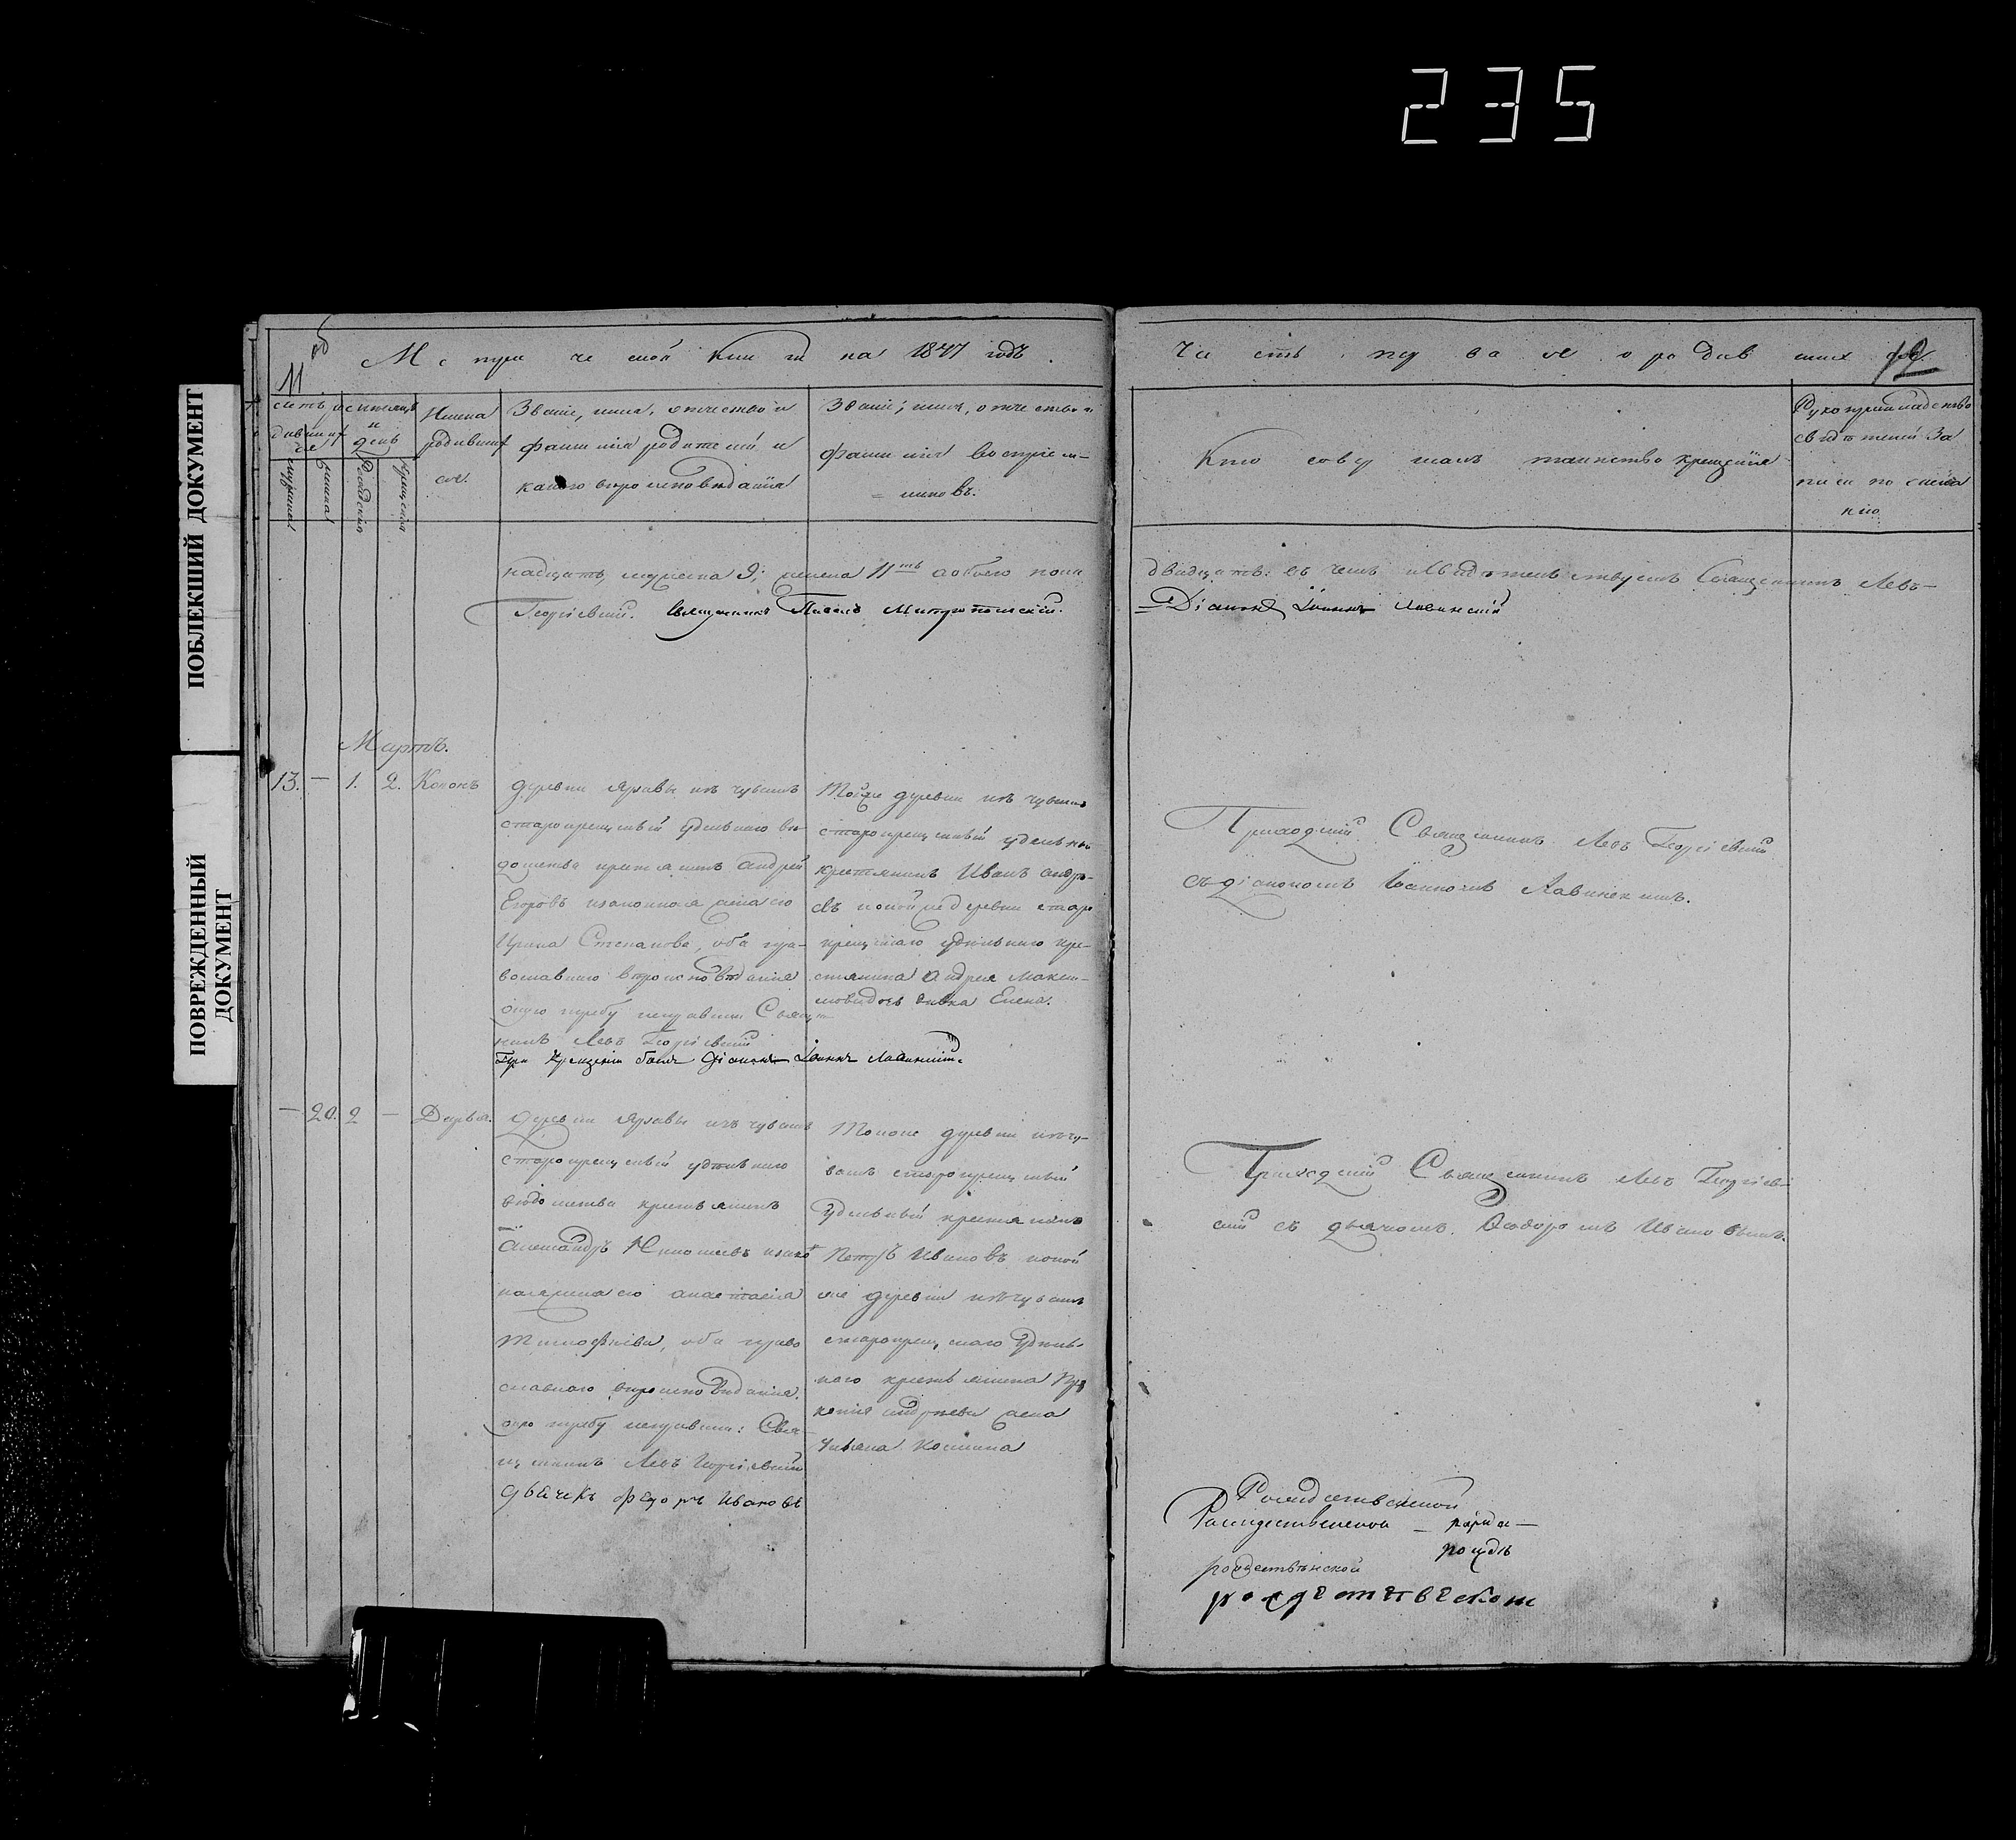 235
ПОБЛЕКШИЙ ДОКУМЕНТ
ПОВРЕЖДЕННЫЙ
ДОКУМЕНТ
11 об
книги на 1847 годъ.
Часть первая о родившихся.
12
Имена
родивших
ся.
Званіе, имя, отчество и
фамилія родителей и
какого вероисповеданія
Званіе, имя, отчество и
фамилія воспріем-
= никовъ.
Кто совершалъ таинство крещенія
Рукоприкладство
свидетелей за
писи по жела
нію
мужеска
женска
Рожденія
Крещенія
надцать, мужеска 9, женска 11ть а обоего пола
двадцать. въ чемъ и свидетельствуемъ Священникъ Левъ
Георгіевскій. Священникъ Павелъ
Діаконъ Іоаннъ Лавинскій
Мартъ.
13. — 1. 2. Кононъ
деревни из чувашъ
старокрещеный удельнаго ве-
домства крестьянинъ Андрей
Егоровъ законная жена его
Ирина Степанова, оба пра-
вославнаго вероисповеданія
оную требу исправлялъ Священ-
никъ Левъ Георгіевскій
При Крещеніи былъ Діаконъ Іоаннъ Лавинскій.
Тойже деревни изъ чувашъ
старокрещеный удельный
крестьянинъ Иванъ Андре-
евъ и той же деревни старо
крещенаго удельнаго кре-
стьянина Андрея Макси-
мова дочь девка Елена.
Приходскій Священникъ Левъ Георгіевскій
съ діакономъ Іоанномъ Лавинскимъ.
— 20. 2 — Дарья.
деревни изъ чувашъ
старокрещеный удельнаго
ведомства крестьянинъ
Александръ и зако
ная жена его Анастасія
Тимофеева, оба право
славнаго вероисповеданія.
оную требу исправлялъ: Свя-
щенникъ Левъ Георгіевскій
дьячекъ Федоръ Ивановъ
Тойже деревни изъ чу-
вашъ старокрещеный
удельный крестьянинъ
Петръ Ивановъ и той
же деревни изъ чувашъ
старокрещенаго удель-
наго крестьянина Про
копія Андреева жена
Приходскій Священникъ Левъ Георгіев-
скій съ дьячкомъ Феодоромъ Ивановымъ.
Рождественской
Рождественской —
рождественской